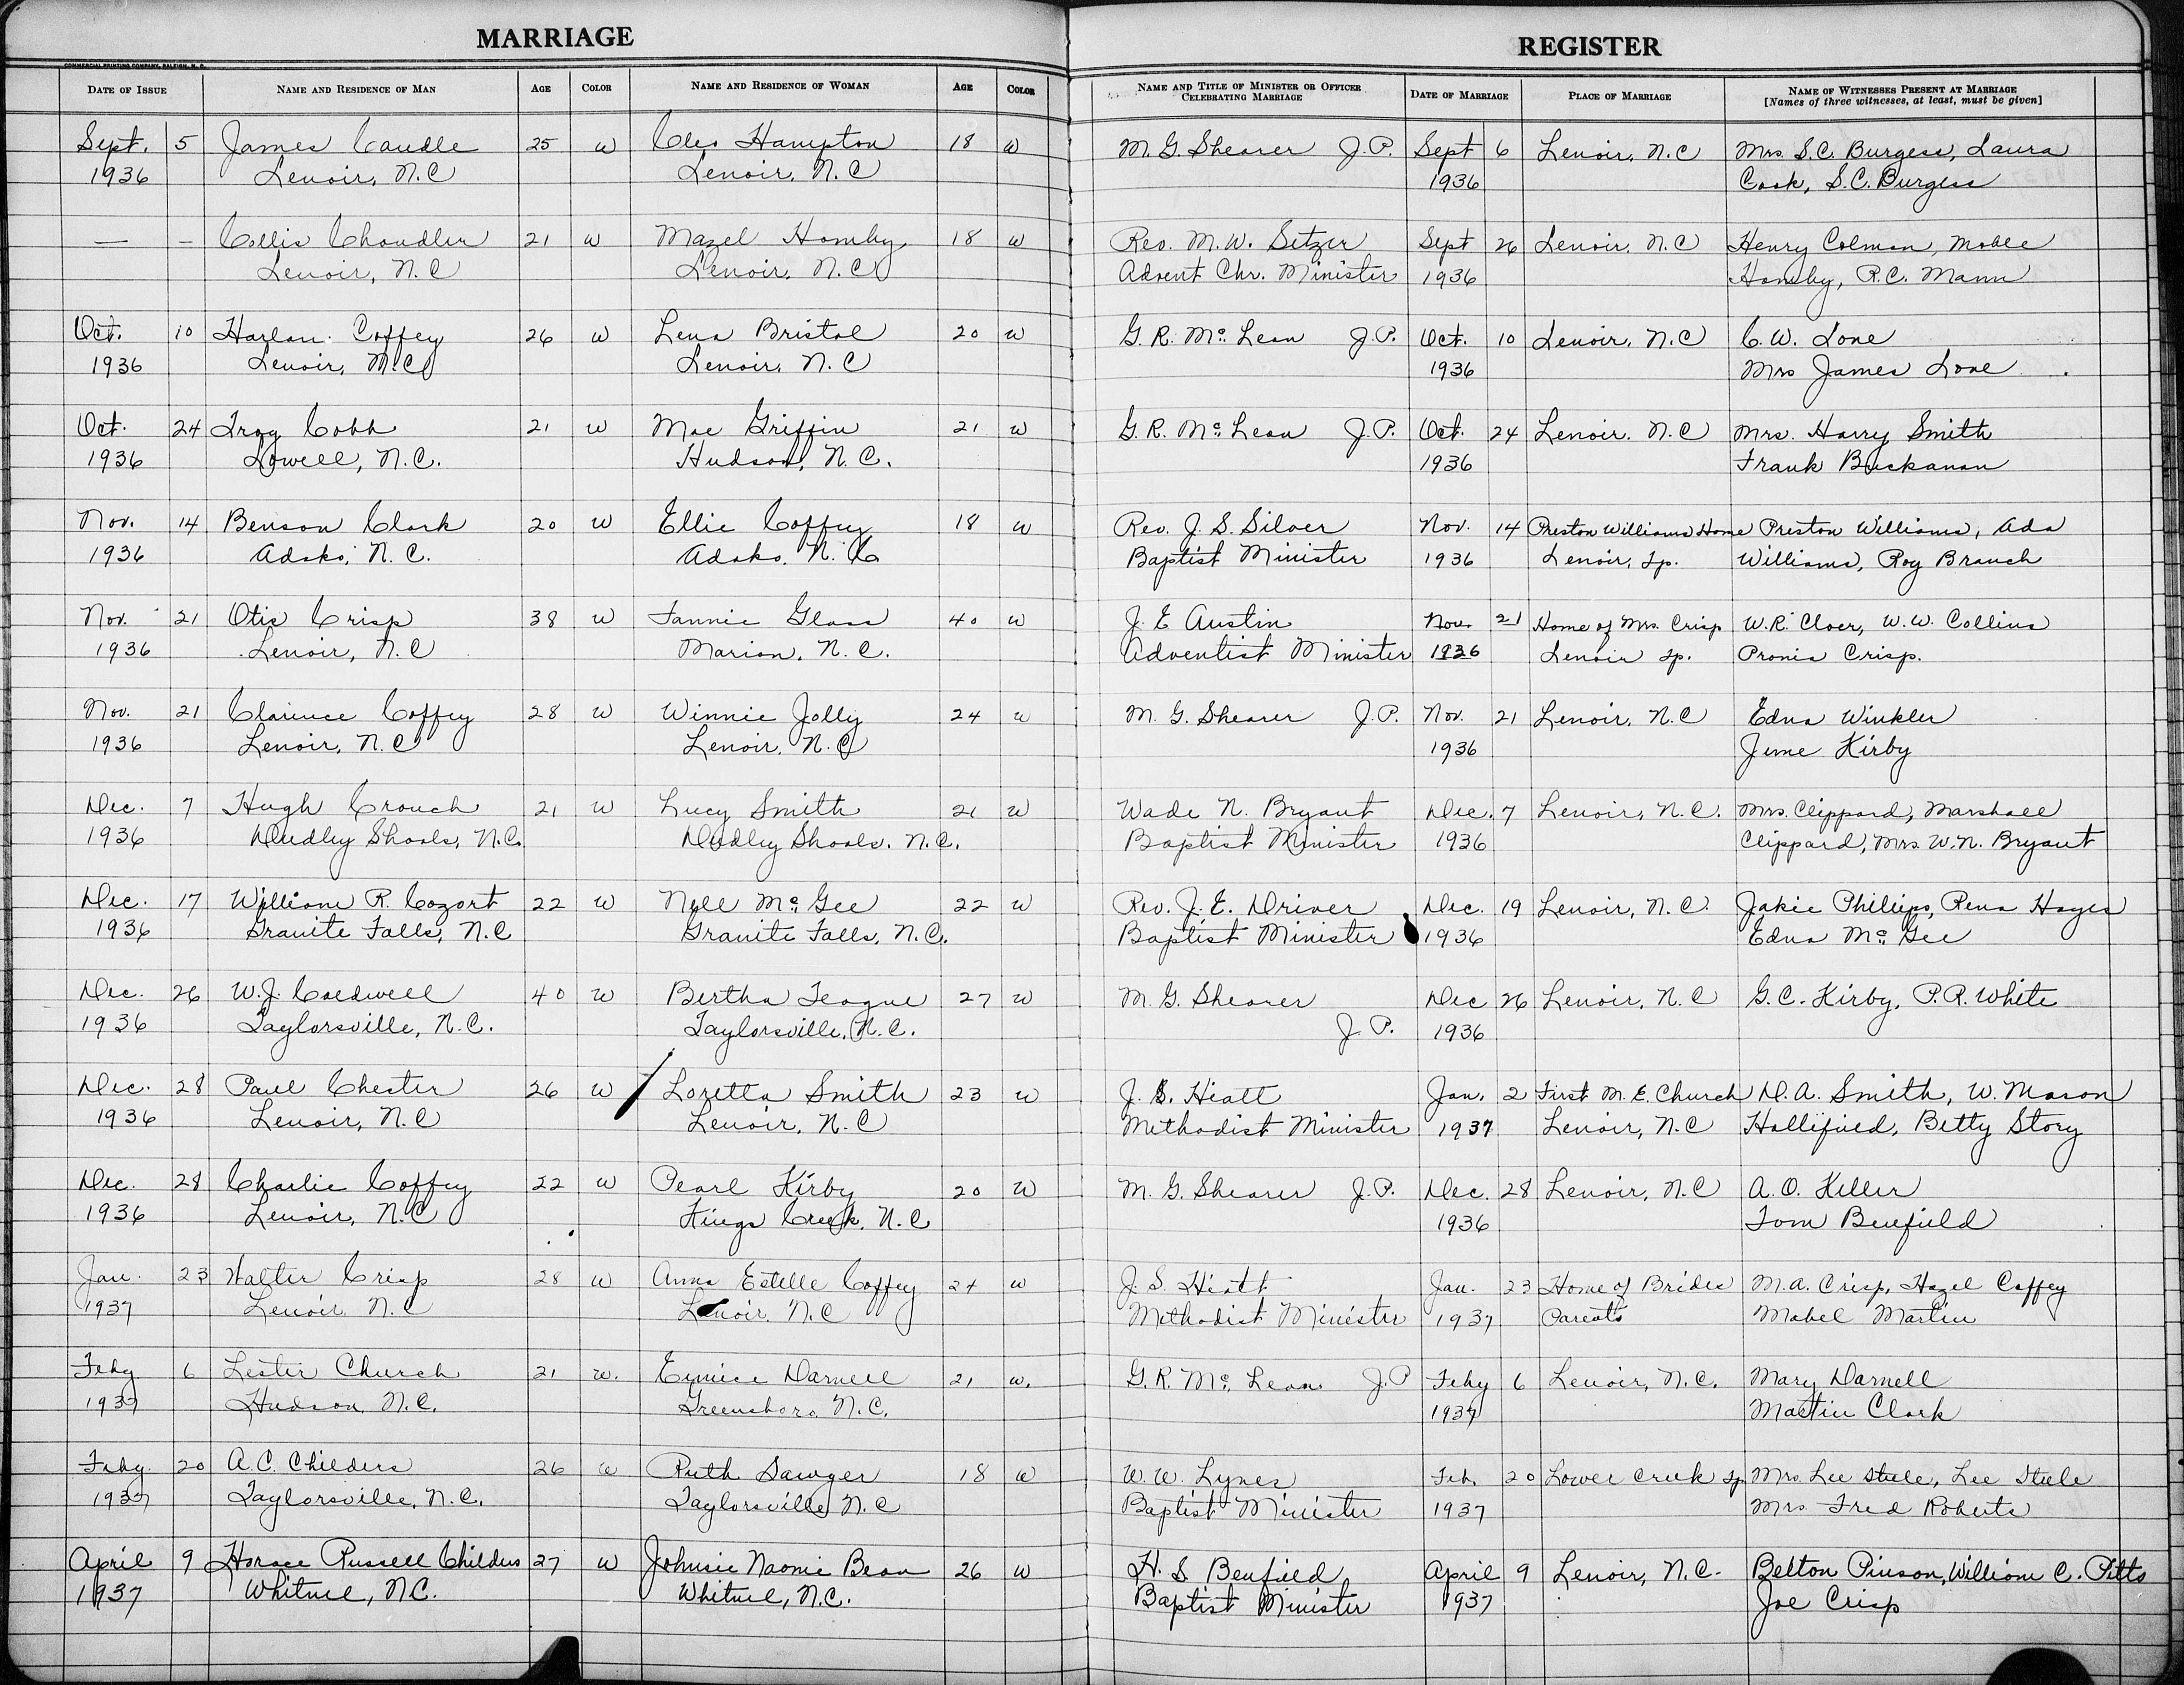 MARRIAGE
REGISTER
COMMERCIAL PRINTING COMPANY, RALEIGH, N. C.
DATE OF ISSUE NAME AND RESIDENCE OF MAN AGE COLOR NAME AND RESIDENCE OF WOMAN AGE COLOR NAME AND TITLE OF MINISTER OR OFFICER CELEBRATING MARRIAGE DATE OF MARRIAGE PLACE OF MARRIAGE NAME OF WITNESSES PRESENT AT MARRIAGE
[Names of three witnesses, at least, must be given]
Sept. 5 James Caudle 25 w Cleo Hampton 18 w M. G. Shearer J.P. Sept 6 Lenoir, N.C Mrs. S.C. Burgess, Laura
1936 Lenoir, N.C Lenoir, N.C 1936 Cook, S.C. Burgess
— — Collis Chandler 21 w Mazel Hamby 18 w Rev. M. W. Setzer Sept 26 Lenoir, N.C Henry Colman, Mable
Lenoir, N.C Lenoir, N.C Advent Chr. Minister 1936 Hamby, R.C. Mann
Oct. 10 Harlan Coffey 26 w Lena Bristol 20 w G. R. McLean J.P. Oct. 10 Lenoir, N.C C. W. Love
1936 Lenoir, N.C Lenoir, N.C 1936 Mrs James Love
Oct. 24 Troy Cobb 21 w Mae Griffin 21 w G. R. McLean J.P. Oct. 24 Lenoir, N.C Mrs. Harry Smith
1936 Lowell, N.C. Hudson, N.C. 1936 Frank Buckanan
Nov. 14 Benson Clark 20 w Ellie Coffey 18 w Rev. J. S. Silver Nov. 14 Preston Williams Home Preston Williams, Ada
1936 Adako, N.C. Adako, N.C Baptist Minister 1936 Lenoir, Tp. Williams, Roy Branch
Nov. 21 Otis Crisp 38 w Fannie Glass 40 w J. E Austin Nov. 21 Home of Mrs. Crisp W.R. Cloer, W.W. Collins
1936 Lenoir, N.C Marion, N.C. Adventist Minister 1936 Lenoir Tp. Pronia Crisp.
Nov. 21 Clarence Coffey 28 w Winnie Jolly 24 w M. G. Shearer J.P. Nov. 21 Lenoir, N.C Edna Winkler
1936 Lenoir, N.C Lenoir, N.C 1936 Kirby
Dec. 7 Hugh Crouch 21 w Lucy Smith 21 w Wade N. Bryant Dec. 7 Lenoir, N.C. Mrs. Clippard, Marshall
1936 Dudley Shoals, N.C. Dudley Shoals, N.C. Baptist Minister 1936 Clippard, Mrs. W.N. Bryant
Dec. 17 William R. Cozort 22 w Nell McGee 22 w Rev. J. E. Driver Dec. 19 Lenoir, N.C. Jakie Phillips, Rena Hayes
1936 Granite Falls, N.C Granite Falls, N.C. Baptist Minister 1936 Edna McGee
Dec. 26 W.J. Caldwell 40 w Bertha Teague 27 w M. G. Shearer Dec 26 Lenoir, N.C G.C. Kirby, P.R. White
1936 Taylorsville, N.C. Taylorsville, N.C. J.P. 1936
Dec. 28 Paul Chester 26 w Loretta Smith 23 w J. S. Hiatt Jan. 2 First M. E. Church D.A. Smith, W. Mason
1936 Lenoir, N.C Lenoir, N.C Methodist Minister 1937 Lenoir, N.C Hollifield, Betty Story
Dec. 28 Charlie Coffey 22 w Pearl Kirby 20 w M. G. Shearer J.P. Dec. 28 Lenoir, N.C A. O. Keller
1936 Lenoir, N.C Kings Creek, N.C 1936 Tom Benfield
Jan. 23 Walter Crisp 28 w Anna Estelle Coffey 24 w J. S. Hiatt Jan. 23 Home of Brides M.A. Crisp, Hazel Coffey
1937 Lenoir N.C Lenoir N.C Methodist Minister 1937 Parents Mabel Martin
Feby 6 Lester Church 21 w. Eunice Darnell 21 w. G. R. McLean J.P Feby 6 Lenoir, N.C. Mary Darnell
1937 Hudson N.C. Greensboro N.C. 1937 Martin Clark
Feby. 20 A. C. Childers 26 w Ruth Sawyer 18 w W. W. Lynes Feb. 20 Lower Creek Tp Mrs. Lee Steele, Lee Steele
1937 Taylorsville, N.C. Taylorsville N.C Baptist Minister 1937 Mrs. Fred Roberts
April 9 Horace Russell Childers 27 w Johnsie Naomi Bean 26 w H. S. Benfield April 9 Lenoir, N.C. Belton Pinson, William C. Pitts
1937 Whitnel, N.C. Whitnel, N.C. Baptist Minister 1937 Joe Crisp